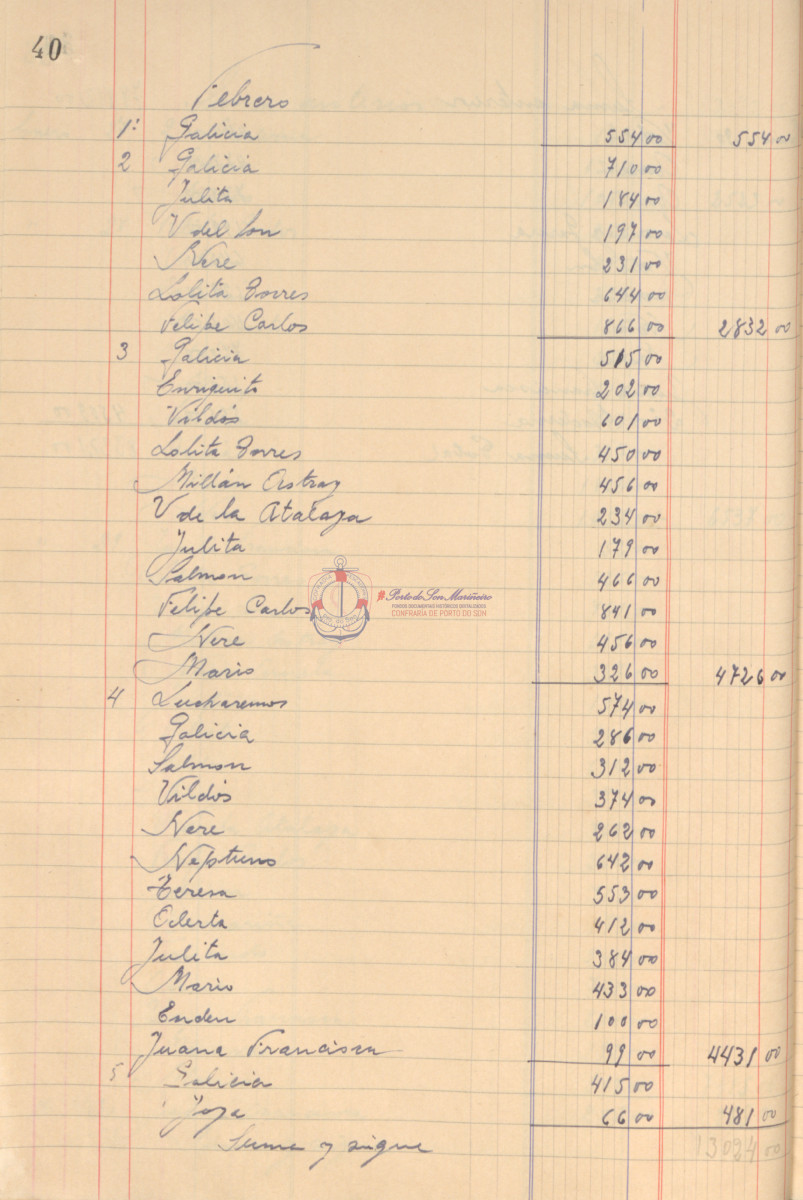 40
Febrero
1º Galicia 554 00 554 00
2 Galicia 710 00
Julita 184 00
V del Son 197 00
Nere 231 00
Lolita Torres 644 00
Felipe Carlos 866 00 2832 00
3 Galicia 515 00
Enriquito 202 00
Vildós 601 00
Lolita Torres 450 00
Millán Astray 456 00
V de la Atalaya 234 00
Julita 179 00
Salmon 466 00
Felipe Carlos 841 00
Nere 456 00
Mario 326 00 4726 00
4 Lucharemos 574 00
Galicia 286 00
Salmon 312 00
Vildós 374 00
Nere 262 00
Neptuno 642 00
Teresa 553 00
Oderta 412 00
Julita 384 00
Mario 433 00
Enden 100 00
Juana Francisca 99 00 4431 00
5 Galicia 415 00
Joya 66 00 481 00
Suma y sigue 13024 00
Porto do Son Mariñeiro
FONDOS DOCUMENTAIS HISTÓRICOS DIXITALIZADOS
CONFRARÍA DE PORTO DO SON